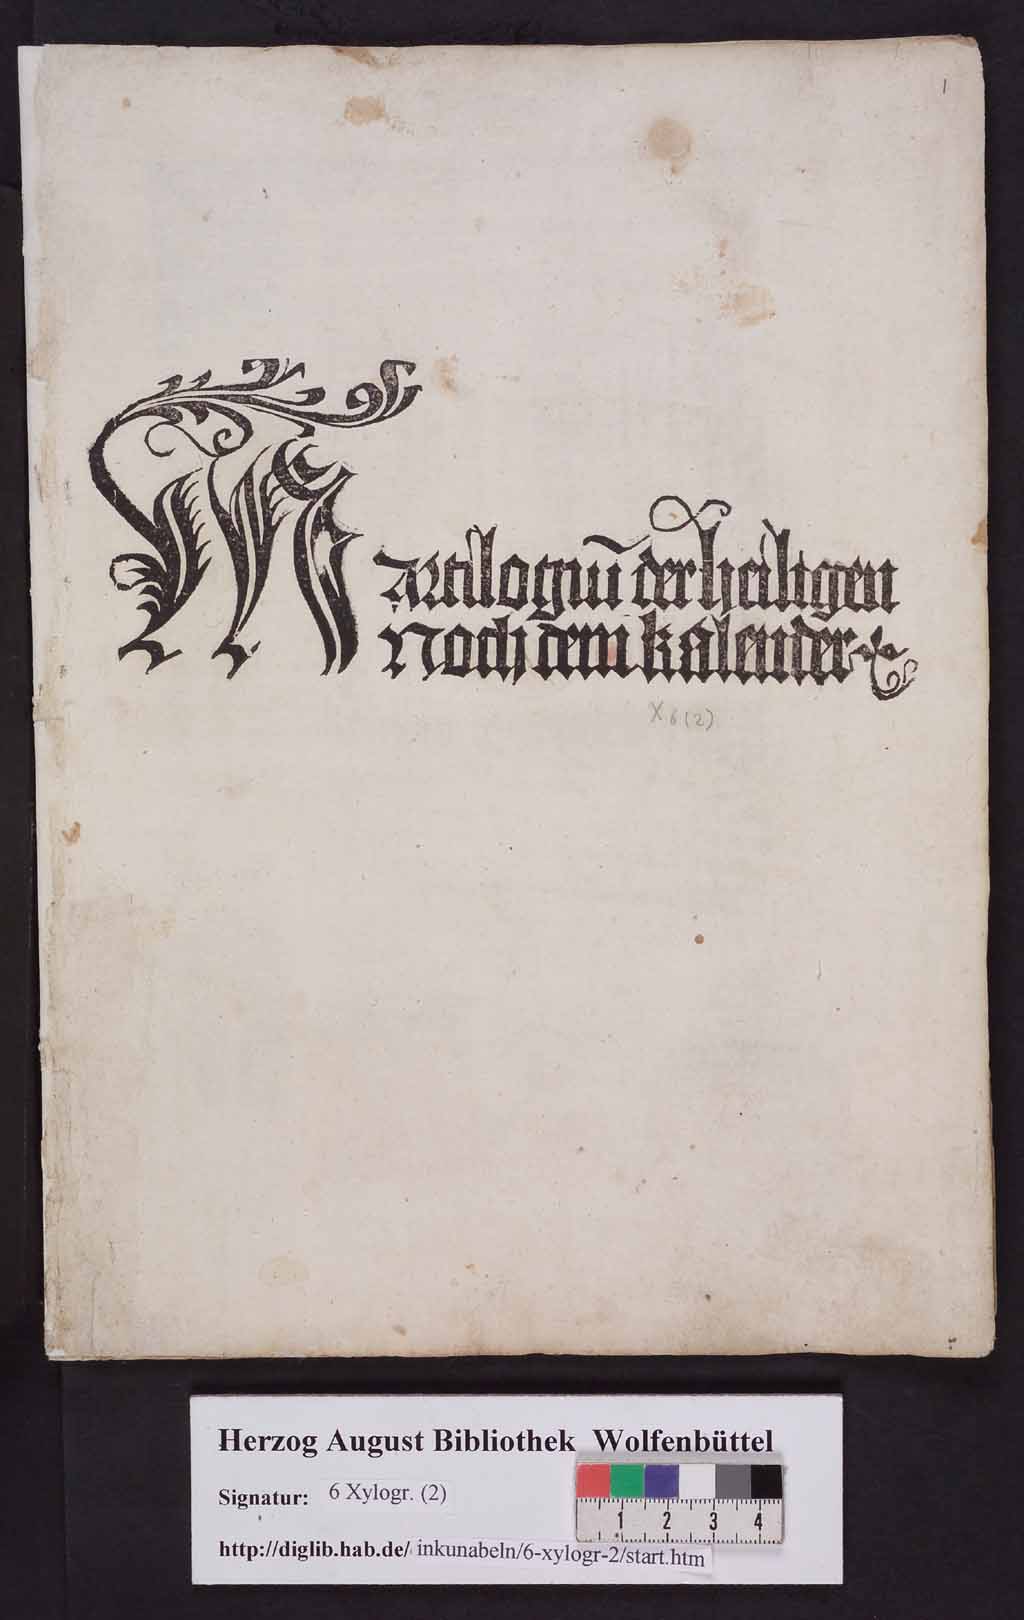 1
MArtilogiū der heiligen
Noch dem kalender
X 6 (2)
Herzog August Bibliothek Wolfenbüttel
Signatur: 6 Xylogr. (2)
1 2 3 4
http://diglib.hab.de/inkunabeln/6-xylogr-2/start.htm